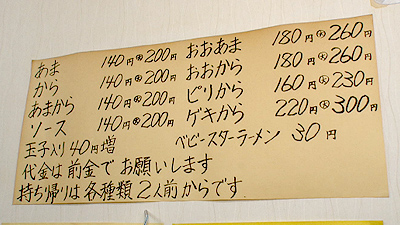 あま 140円 大 200円 おおあま 180円 大 260円
から 140円 大 200円 おおから 180円 大 260円
あまから 140円 大 200円 ピリから 160円 大 230円
ソース 140円 大 200円 ゲキから 220円 大 300円
玉子入り40円増 ベビースターラーメン 30円
代金は前金でお願いします
持ち帰りは各種類2人前からです